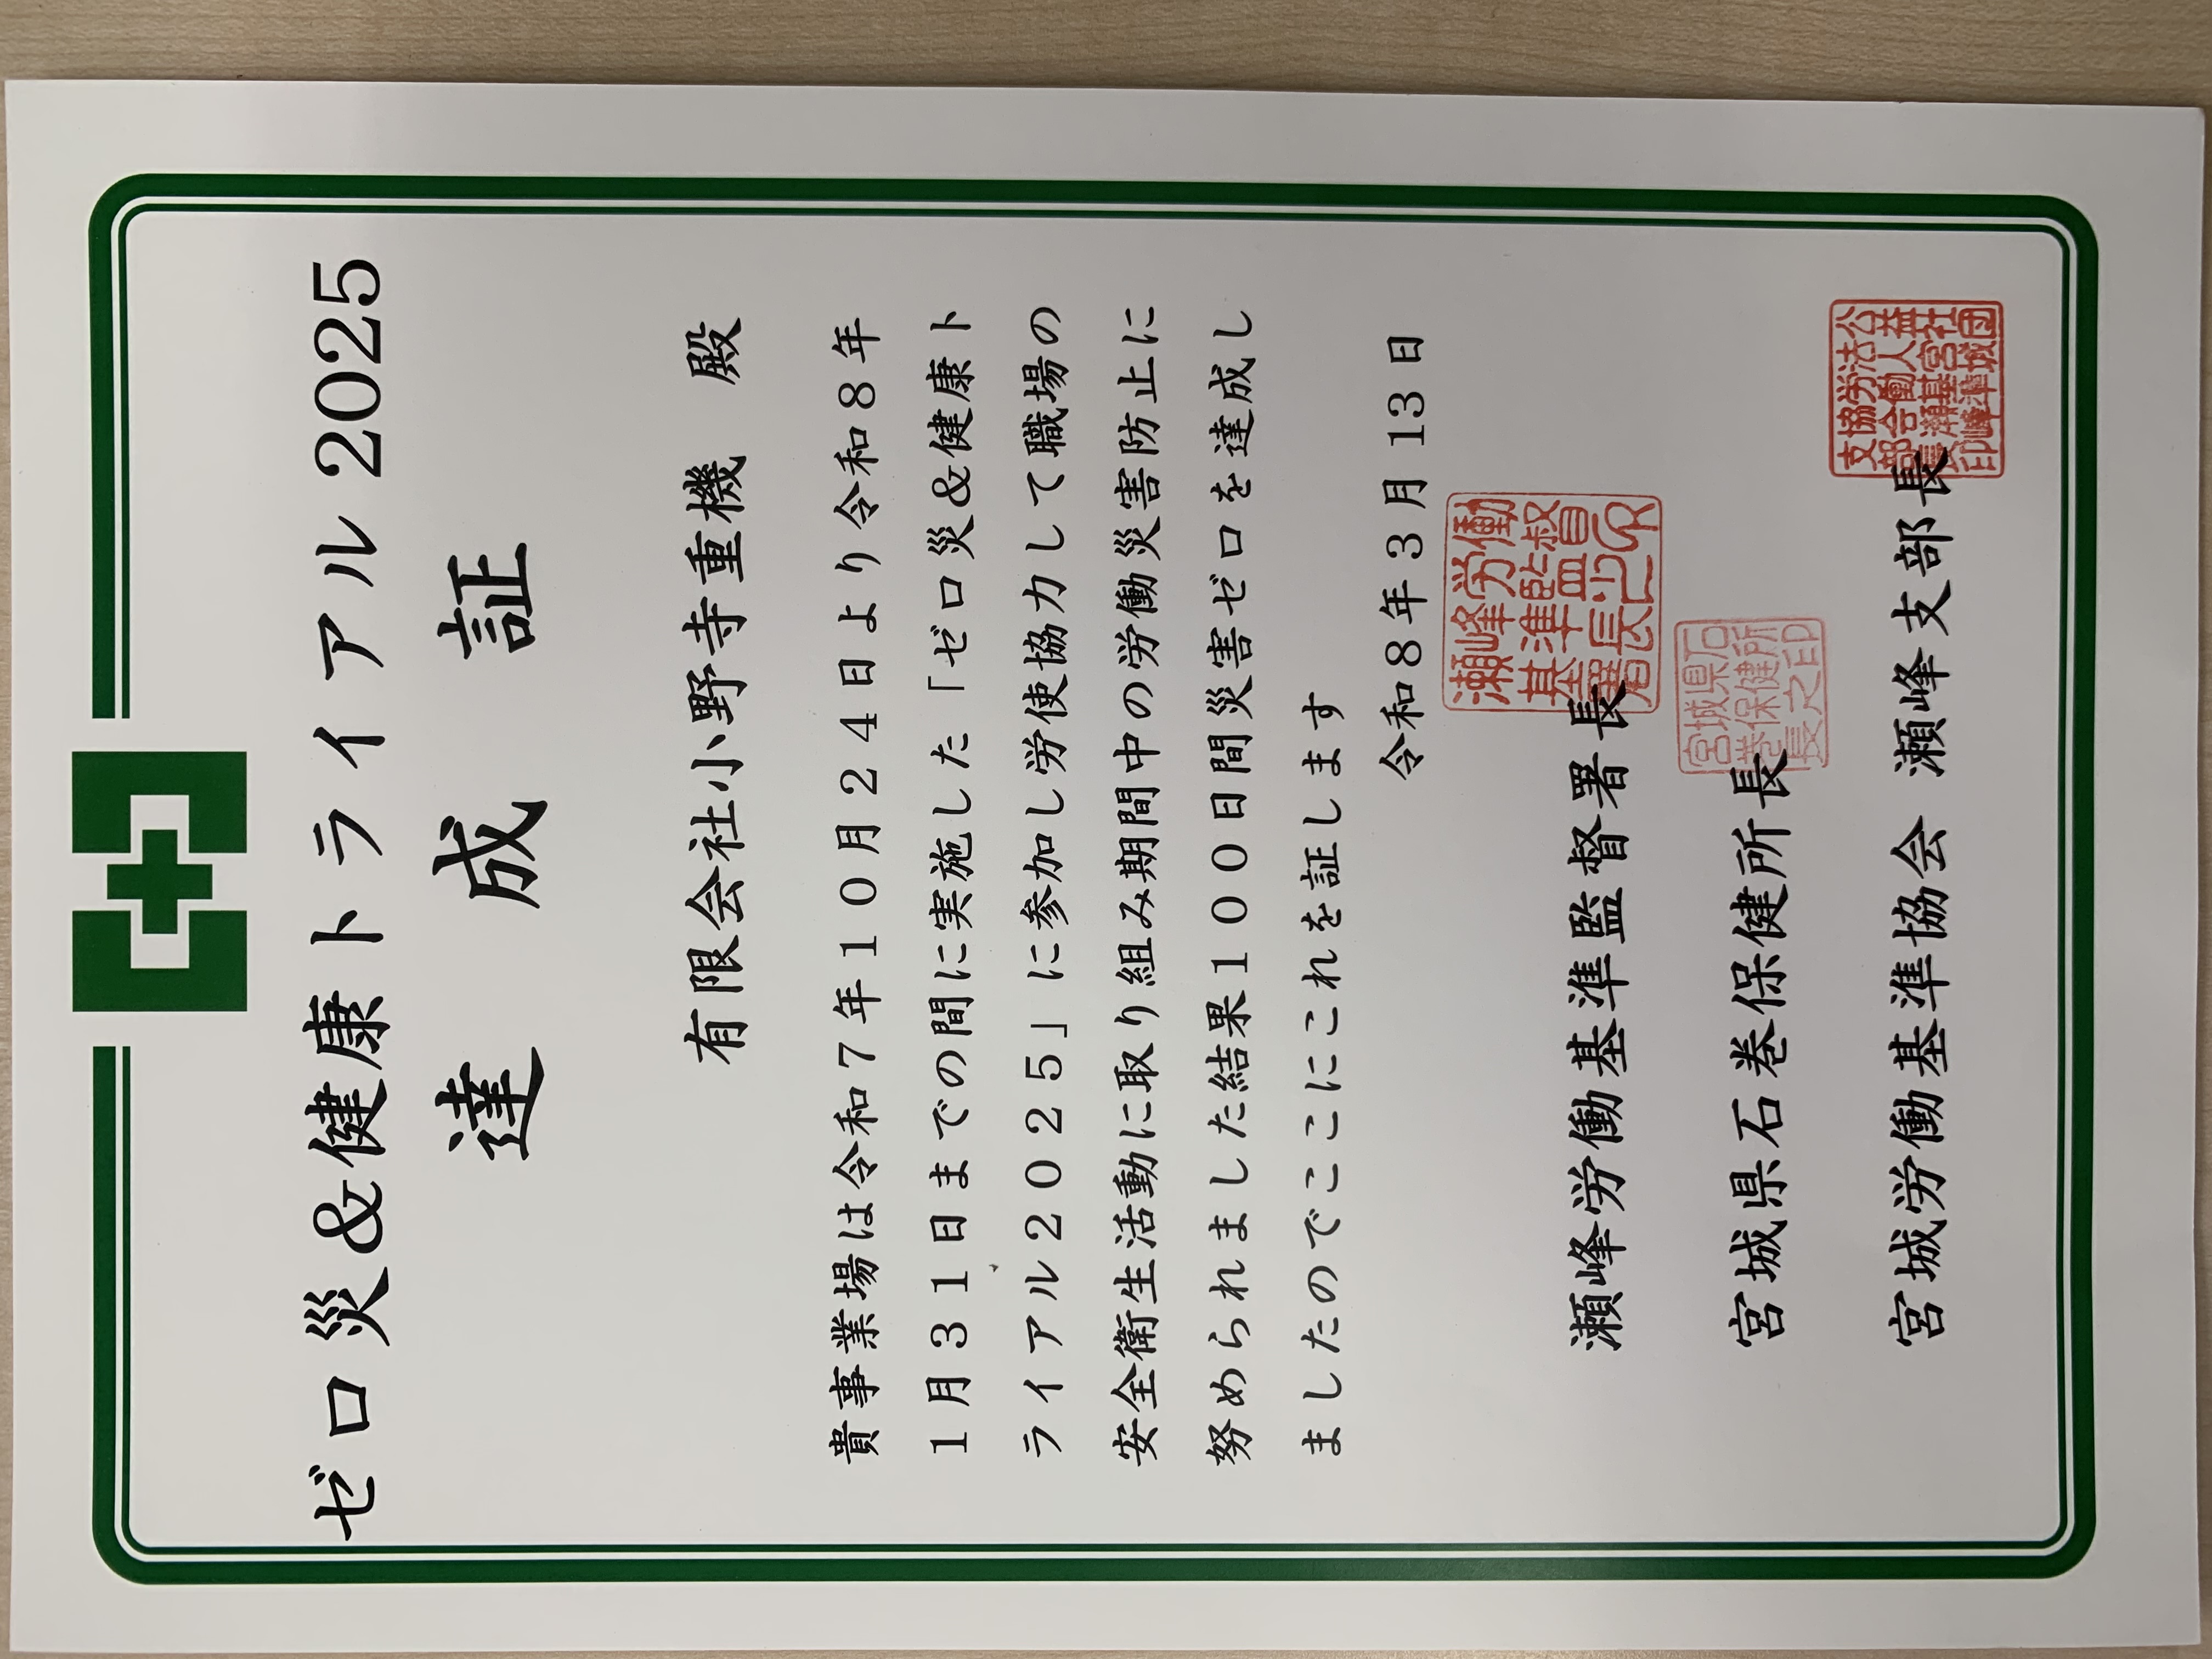 ゼロ災&健康トライアル2025
達成証
有限会社小野寺重機 殿
貴事業場は令和7年10月24日より令和8年
1月31日までの間に実施した「ゼロ災&健康ト
ライアル2025」に参加し労使協力して職場の
安全衛生活動に取り組み期間中の労働災害防止に
努められました結果100日間災害ゼロを達成し
ましたのでここにこれを証します
令和8年3月13日
瀬峰労働基準監督署長
瀬峰労働基準監督署長之印
宮城県石巻保健所長
宮城県石巻保健所長之印
宮城労働基準協会 瀬峰支部長
公益社団法人宮城労働基準協会瀬峰支部長印